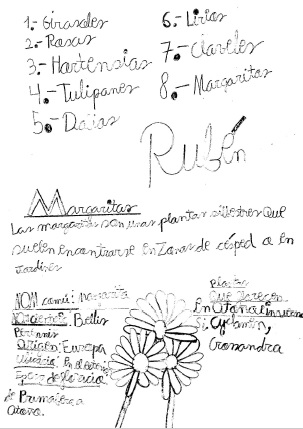 1.- Girasoles
2.- Rosas
3.- Hortensias
4.- Tulipanes
5.- Dalias
6.- Lirios
7.- Claveles
8.- Margaritas
Rubén
Margaritas
Las margaritas son unas plantas silvestres que
suelen encontrarse en zonas de césped o en
Jardines
NOM comú: margarita
Bellis
Perennis
Origen: Europa
Época de floració
de Primavera a
Otoro.
Plantas
Que florecen
En Otoño
Si Cyclamen,
Crossandra